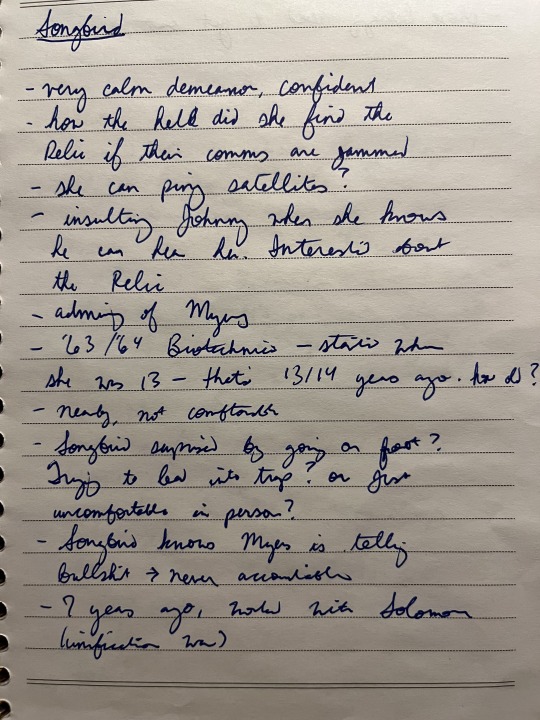 Songbird
- very calm demeanor, confident
- how the hell did she find the
Relic if their comms are jammed
- she can ping satellites?
- insulting Johnny when she knows
he can hear her. Interesting about
the Relic
- admiring of Myers
- '63/'64 Biotechnica - static when
she was 13 - that's 13/14 years ago.
- nearby, not comfortable
- Songbird surprised by going on foot?
Trying to lead into trap? or just
uncomfortable in person?
- Songbird knows Myers is telling
bullshit → never accountable
- 7 years ago, worked with Solomon
(unification war)